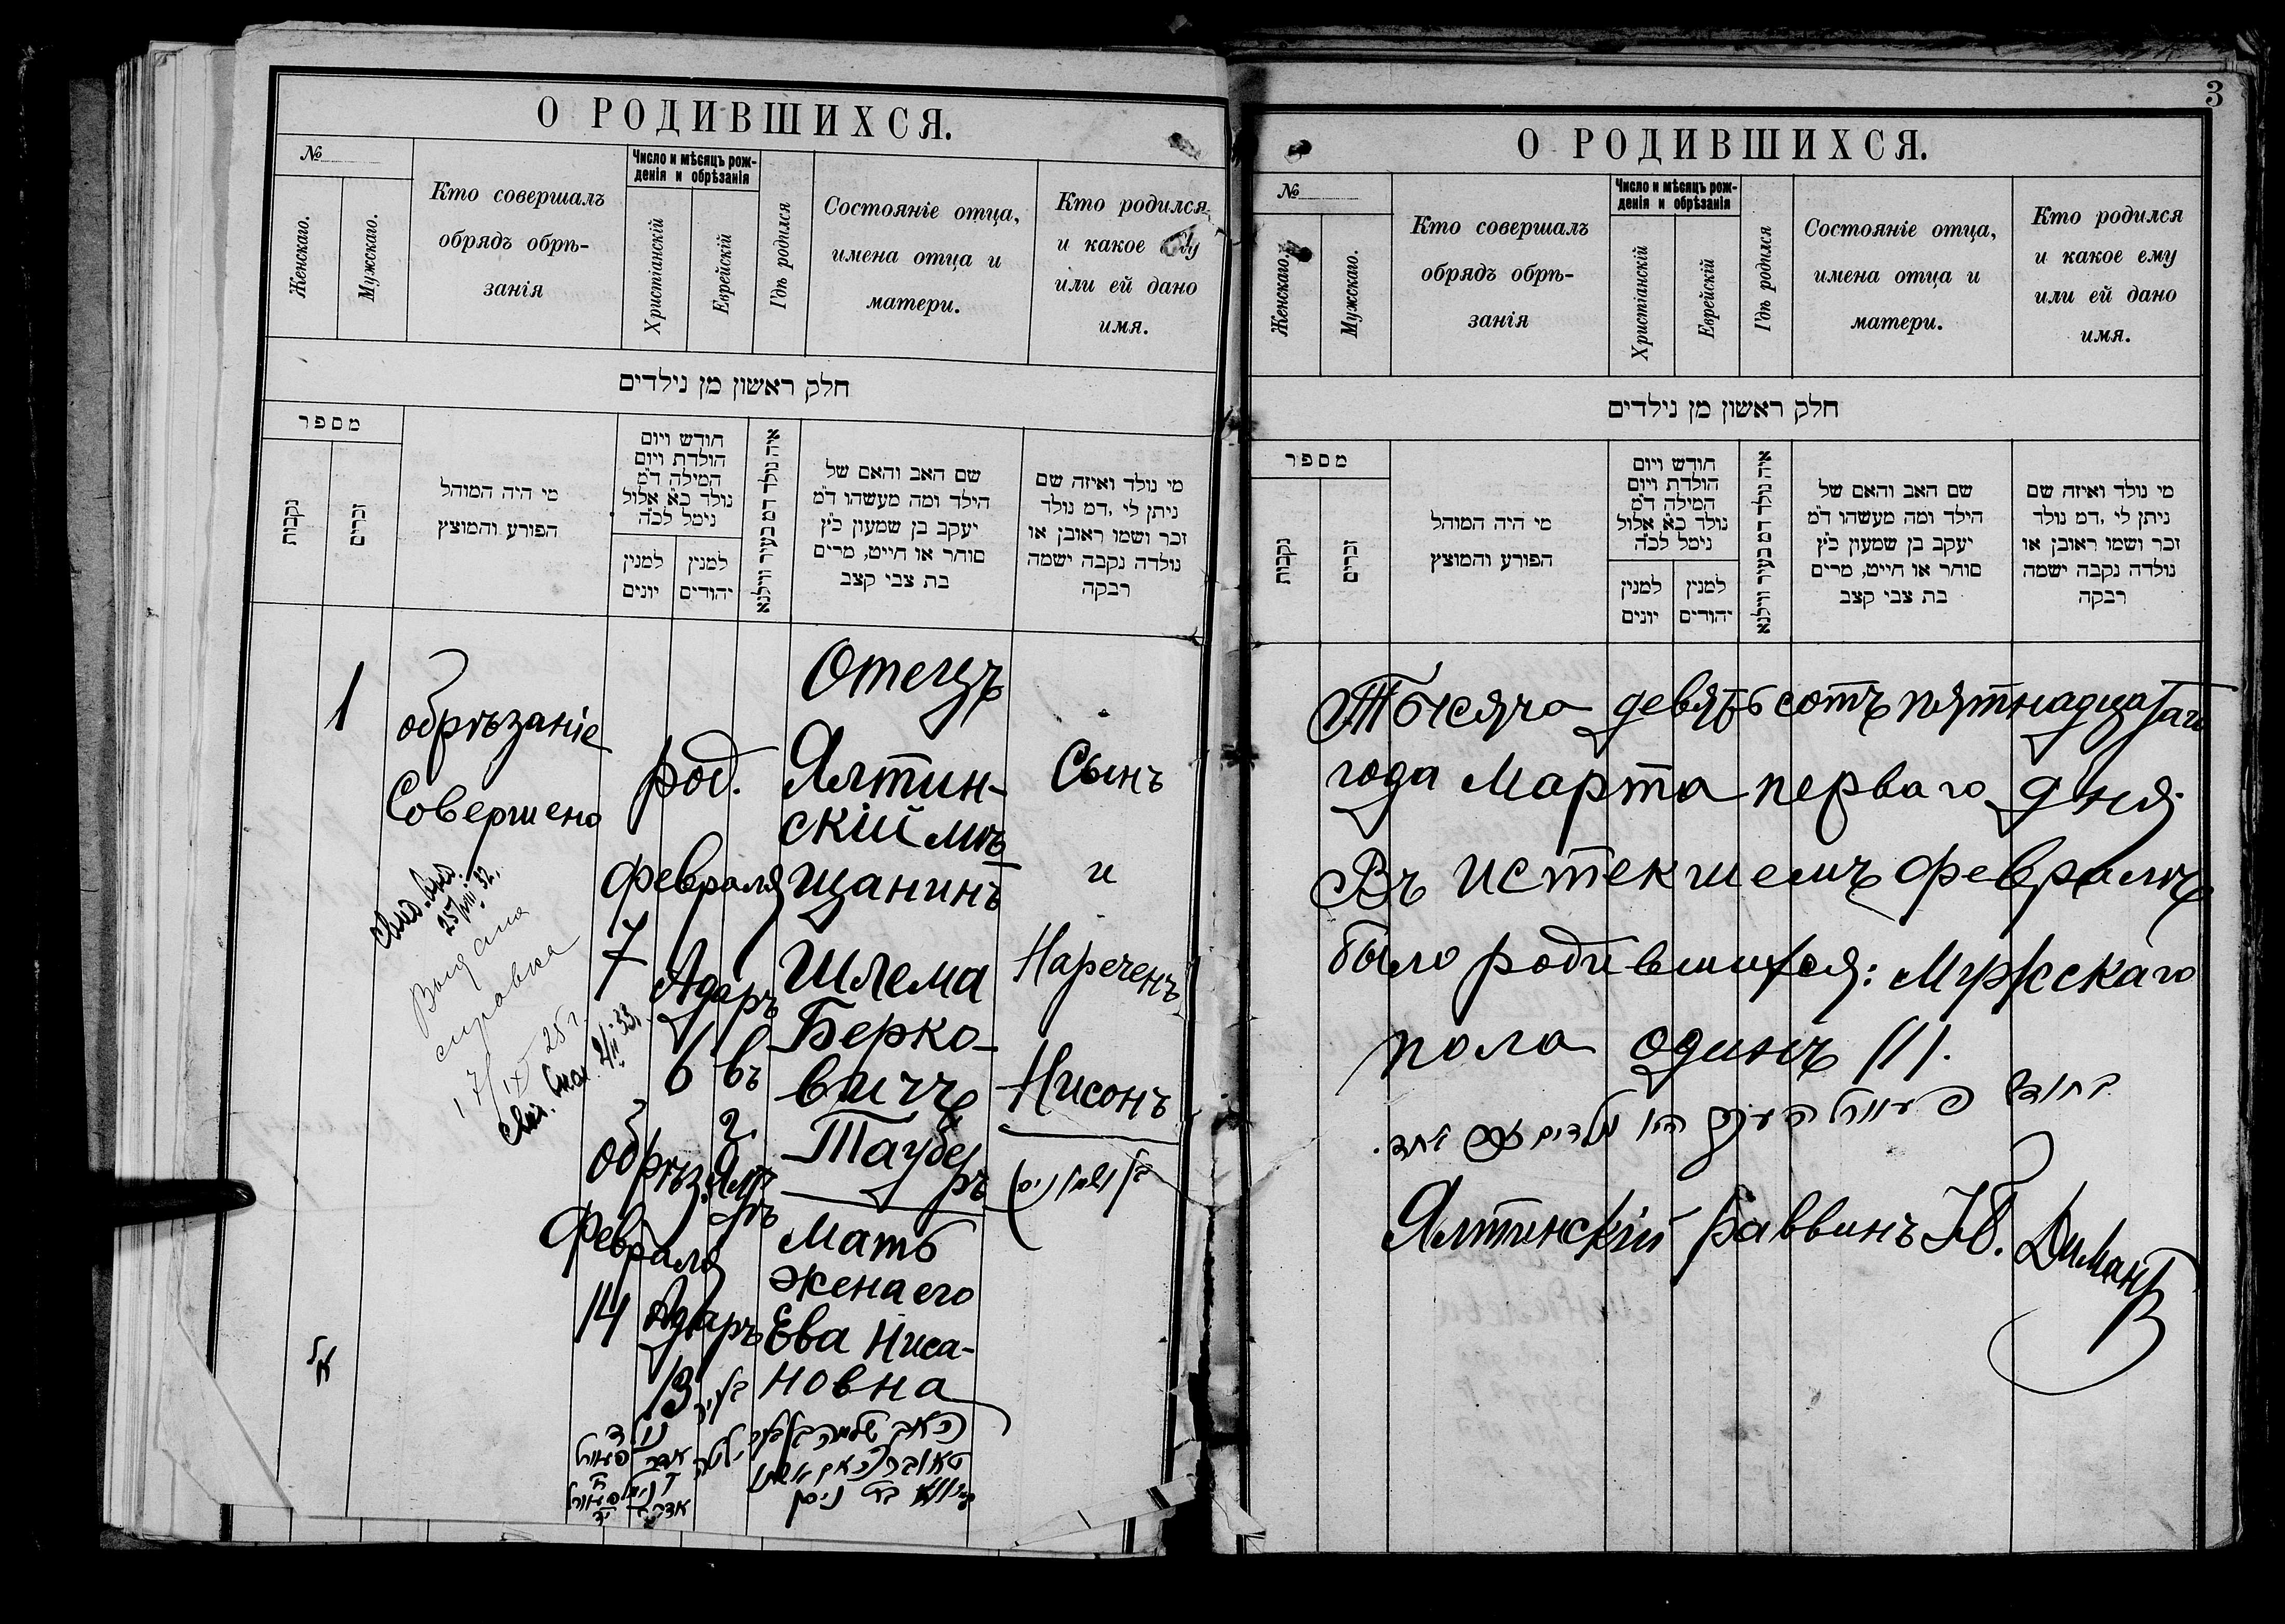 О РОДИВШИХСЯ.
№
Женскаго.
Мужскаго.
Кто совершалъ
обрядъ обрѣ-
занія
Число и мѣсяцъ рож-
денія и обрѣзанія
Христіанскій
Еврейскій
Гдѣ родился
Состояніе отца,
имена отца и
матери.
Кто родился
и какое ему
или ей дано
имя.
חלק ראשון מן נילדים
מספר
נקבות
זכרים
מי היה המוהל
הפורע והמוצץ
חודש ויום
הולדת ויום
המילה ד"מ
נולד כ"א אלול
נימל לכ"ה
למנין
יונים
למנין
יהודים
איה נולד דמ בעיר ווילנא
שם האב והאם של
הילד ומה מעשהו ד"מ
יעקב בן שמעון כ"ץ
סוחר או חייט, מרים
בת צבי קצב
מי נולד ואיזה שם
ניתן לי ,דמ נולד
זכר ושמו ראובן או
נולדה נקבה ישמה
רבקה
1
обрѣзаніе
Совершено
Выдана
справка
17/IX 25 г.
род.
Февраля
7
Адаръ
6
въ
обрѣз.
Февраля
14
Адаръ
13
Отецъ
Ялтин-
скій мѣ-
щанинъ
Шлема
Берко-
вичъ
Тауберъ
Мать
жена его
Ева Ниса-
новна
Сынъ
и
Нареченъ
Нисонъ
3
О РОДИВШИХСЯ.
№
Женскаго.
Мужскаго.
Кто совершалъ
обрядъ обрѣ-
занія
Число и мѣсяцъ рож-
денія и обрѣзанія
Христіанскій
Еврейскій
Гдѣ родился
Состояніе отца,
имена отца и
матери.
Кто родился
и какое ему
или ей дано
имя.
חלק ראשון מן נילדים
מספר
נקבות
זכרים
מי היה המוהל
הפורע והמוצץ
חודש ויום
הולדת ויום
המילה ד"מ
נולד כ"א אלול
נימל לכ"ה
למנין
יונים
למנין
יהודים
איה נולד דמ בעיר ווילנא
שם האב והאם של
הילד ומה מעשהו ד"מ
יעקב בן שמעון כ"ץ
סוחר או חייט, מרים
בת צבי קצב
מי נולד ואיזה שם
ניתן לי ,דמ נולד
זכר ושמו ראובן או
נולדה נקבה ישמה
רבקה
Тысяча девятьсотъ пятнадцатаго
года Марта перваго дня.
Въ истекшемъ Февралѣ
было родившихся: Мужскаго
пола одинъ (1).
Ялтинскій Раввинъ